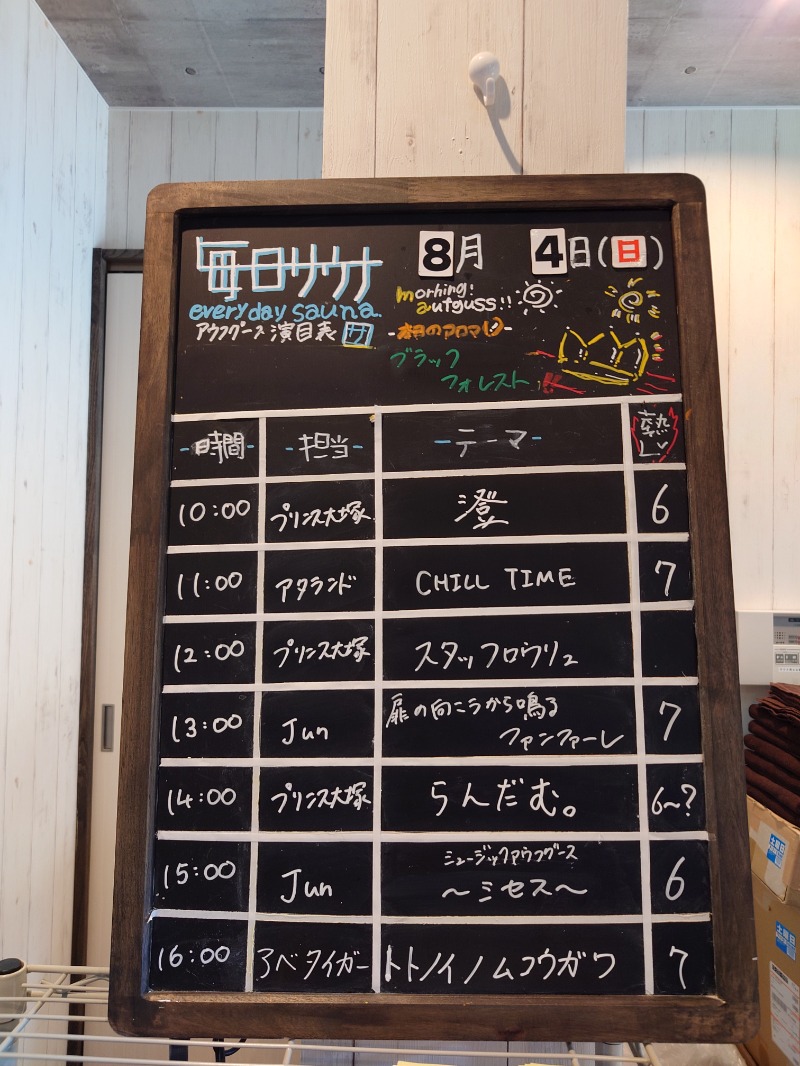 毎日サウナ
8月 4日(日)
everyday sauna.
morning!
aufguss!!
アウフグース演目表 サ
-本日のアロマ-
ブラック
フォレスト
-時間- -担当- -テーマ- 熱レベ
10:00 プリンス大塚 澄 6
11:00 アタランド CHILL TIME 7
12:00 プリンス大塚 スタッフロウリュ
13:00 Jun 扉の向こうから鳴る
ファンファーレ 7
14:00 プリンス大塚 らんだむ。 6~?
15:00 Jun ミュージックアウフグース
~ミセス~ 6
16:00 アベタイガー トトノイノムコウガワ 7